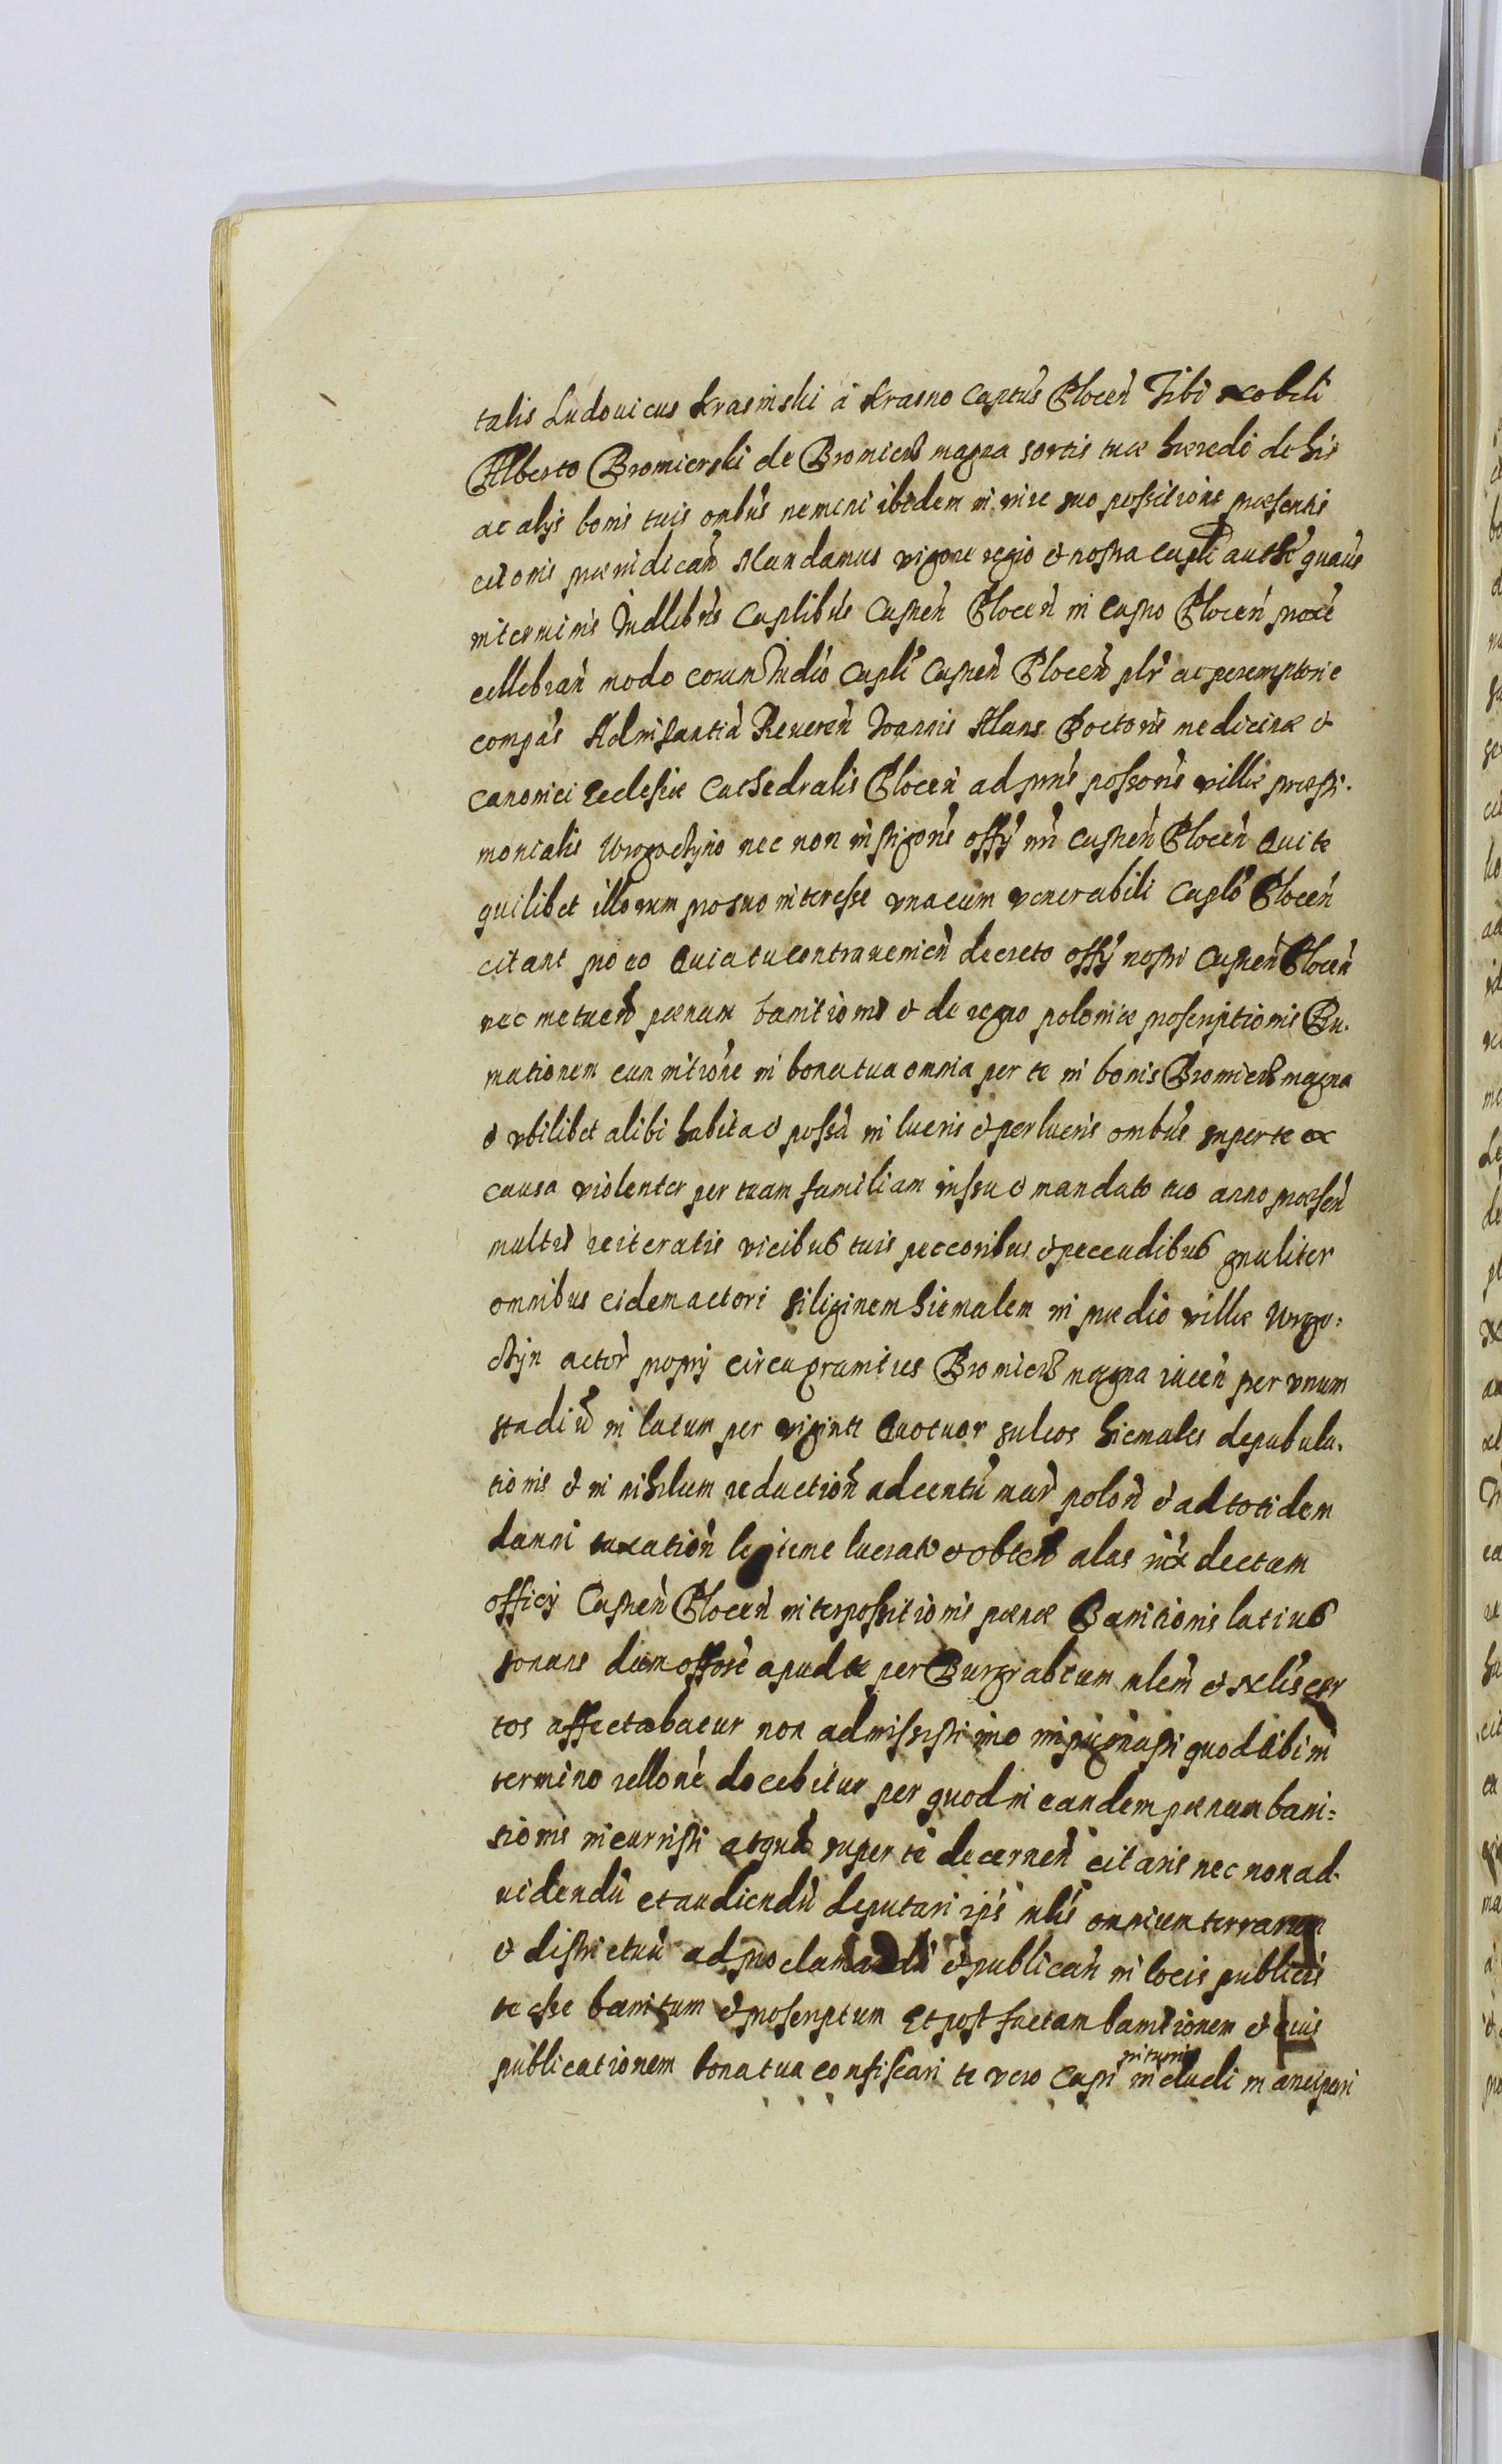 talis Ludouicus Krasinski a Krasno Captūs Plocen̄ Tibi Nobili
Alberto Bromierski de Bromierz magna sortis tuæ hæredi de his
ac alys bonis tuis ombūs nemini ibidem in iure suo possitione præsentis
citonis præiudican̄ Mandamus vigore regio et nostra Capli authē quaūs
in terminis Iudlibūs Caplibūs Casten̄ Plocen̄ in Castro Plocen̄ proxē
cellebran̄ modo coram Iudio Capli Casten̄ Plocen̄ plr ac peremptorie
compās Ad instantiā Reueren̄ Joannis Mans Doctoris medicinæ et
Canonici Ecclesiæ Cathedralis Plocen̄ ad prns possoris villæ præsti-
monialis Wrogoctyno nec non instigoris offȳ nri Casten̄ Plocen̄ Qui te
quilibet illorum pro suo interesse vna cum venerabili Caplo Plocen̄
citant pro eo Quia tu contravenien̄ decreto offȳ nostri Casten̄ Plocen̄
nec metuen̄ pænam banitionis et de regno poloniæ proscriptionis Ru-
mationem cum intrōne in bona tua omnia per te in bonis Bromierz magna
et vbilibet alibi habita et possā in lucris et perlucris ombūs super te ex
causa violenter per tuam familiam iussu et mandato tuo anno præsen̄
multis reiteratis vicibus tuis peccoribus et peccudibus gnaliter
omnibus eidem actori siliginem hiemalem in prædio villæ Wrogo-
ctyn actor̄ proprÿ circa granities Bromierz magna iacen̄ per vnum
stadiū in latum per viginti Quotuor sulcos hiemales depabula-
tionis et in nihilum reduction̄ ad centū mar̄ polon̄ et ad totidem
damni taxation̄ legitime lucrat et obten̄ alas iux dectam
officÿ Casten̄ Plocen̄ interpossitionis pænæ Banitionis latius
sonans dum offose apud te per Burgrabium mlem et Nbles
tos affectabatur non admissisti imo impugnasti quod tibi in
termino rellone docebitur per quod in eandem pænam bani-
tionis incurristi atque super te decernen̄ citaris nec non ad
uidendū et audiendū deputari ips mlis omnium terrarum
et districtuū ad proclamandū et publican̄ in locis publicis
te esse banitum et proscriptum Et post factam banitionem et eius
publicationem bona tua confiscari te vero Capi includi in ancipari